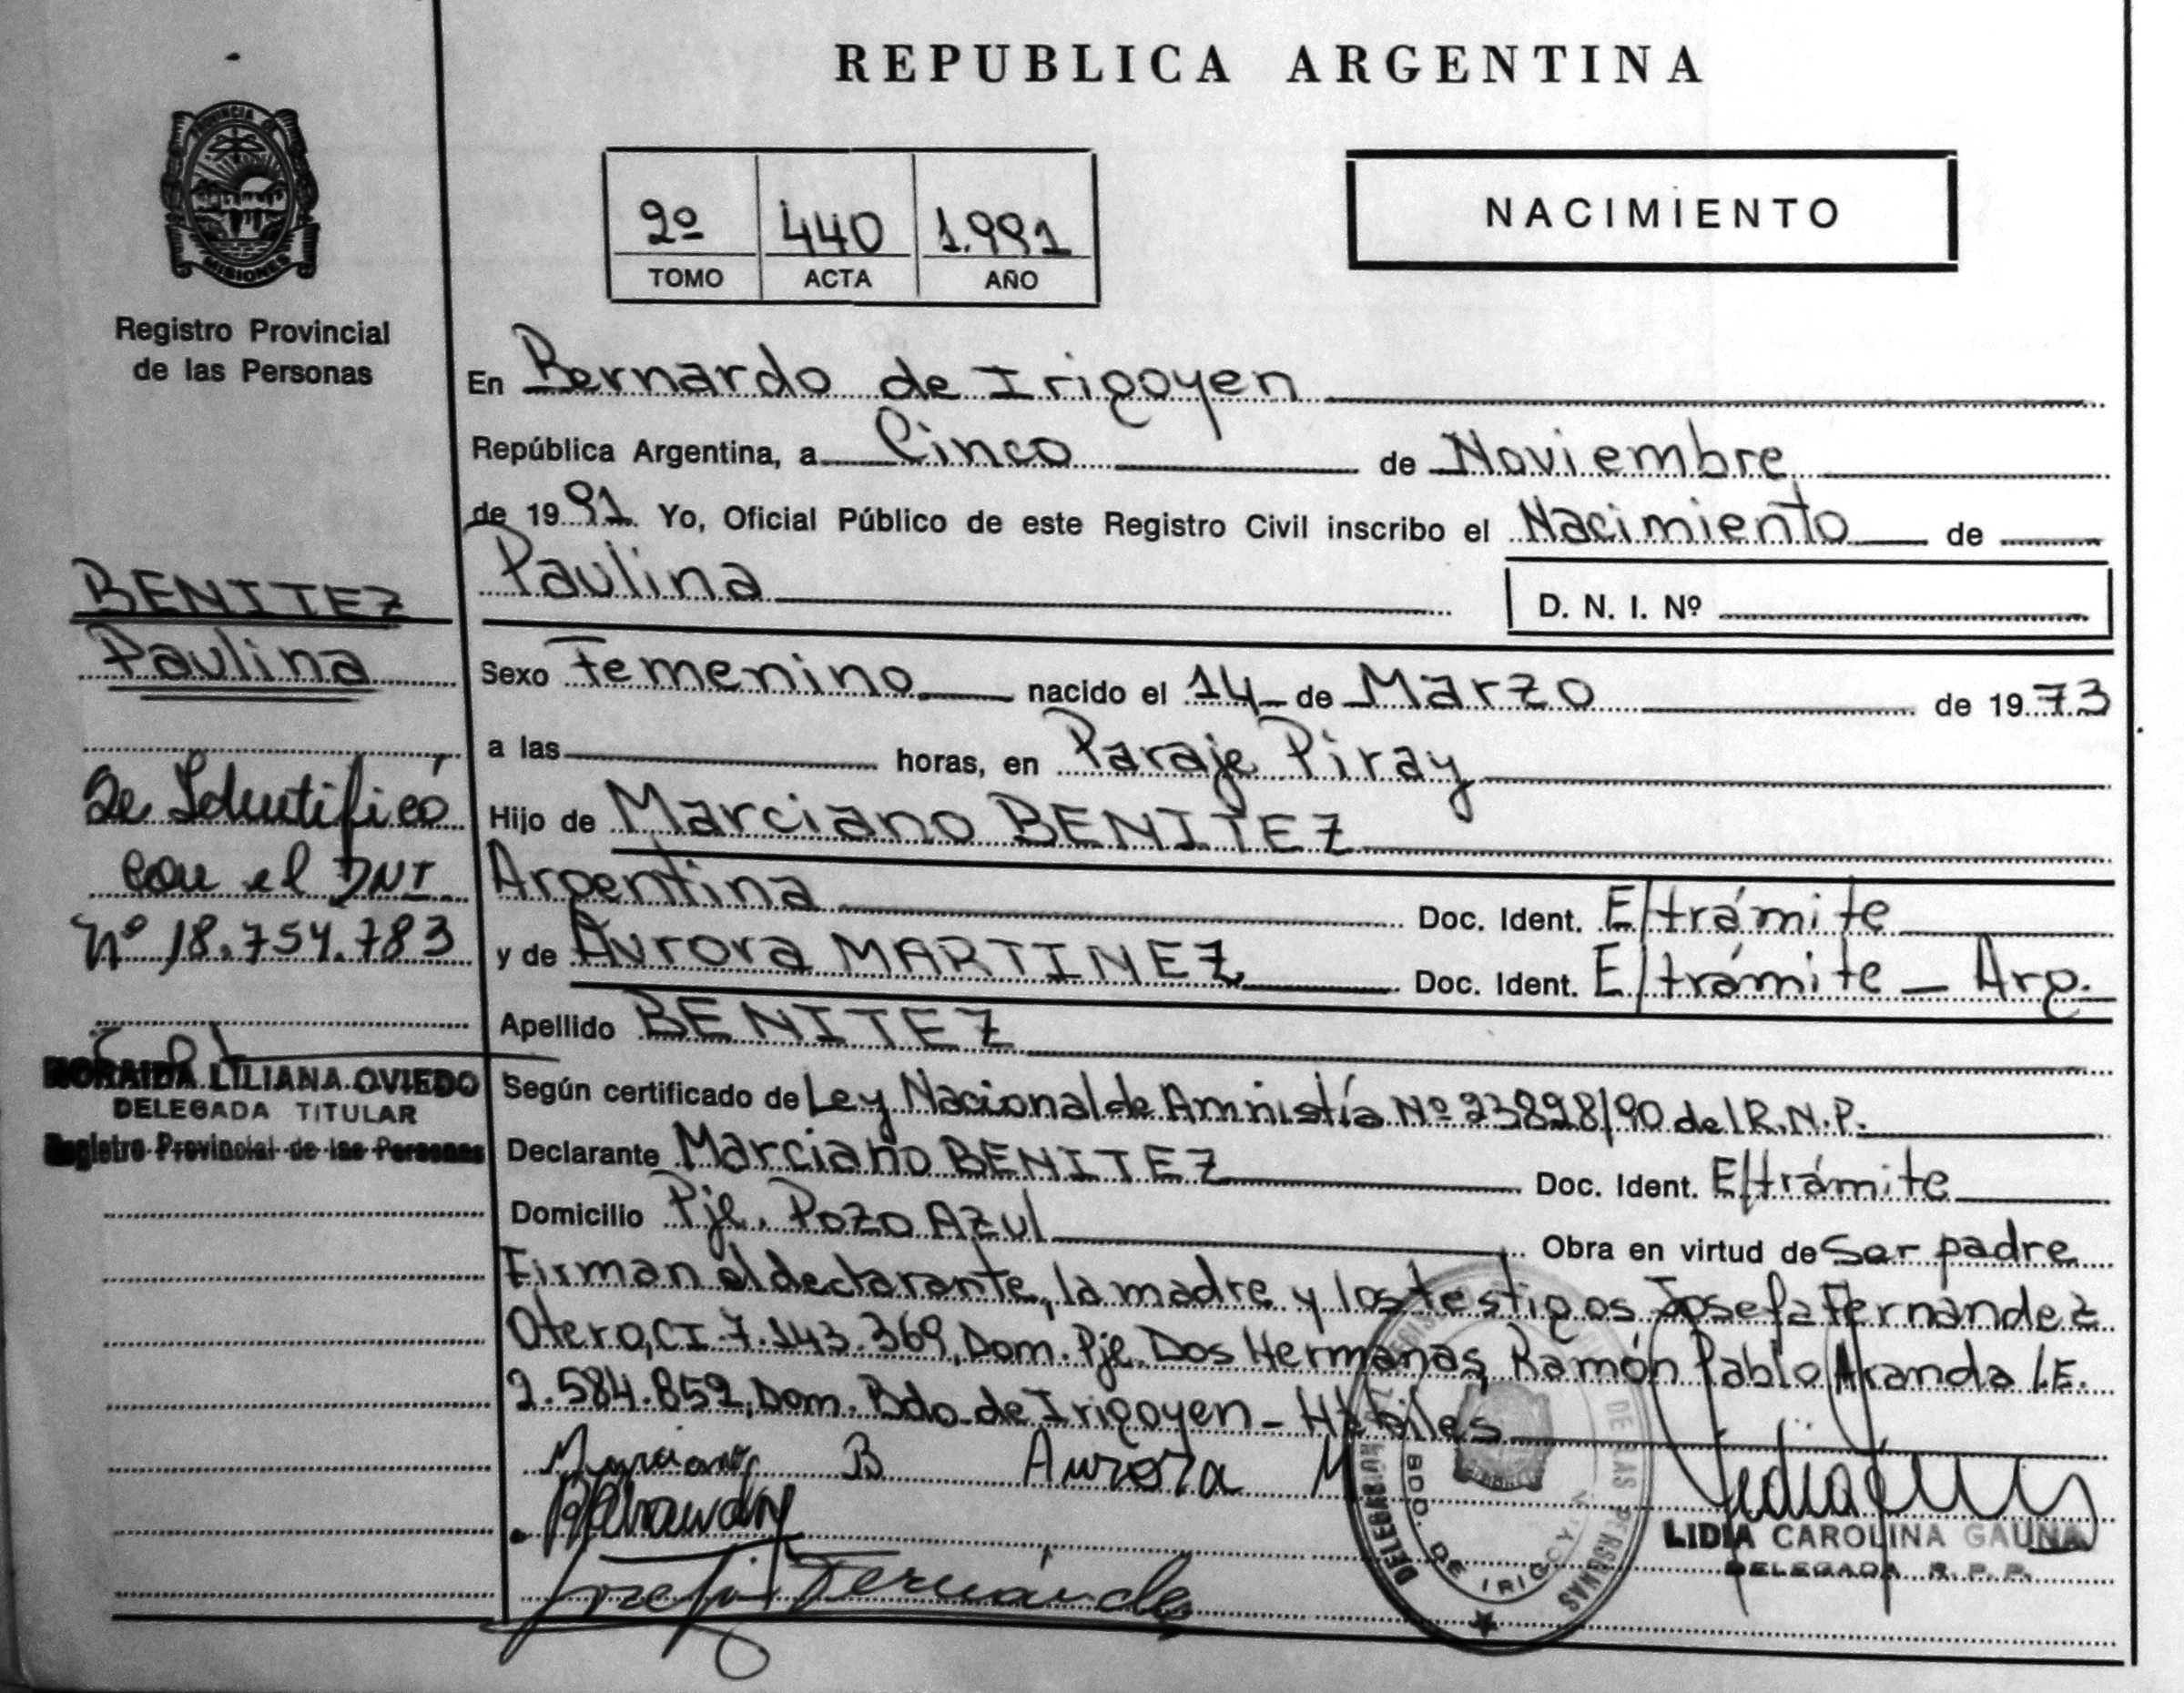 REPUBLICA ARGENTINA
PROVINCIA DE
MISIONES
Registro Provincial
de las Personas
2º 440 1.991
TOMO ACTA AÑO
NACIMIENTO
En Bernardo de Irigoyen
República Argentina, a Cinco de Noviembre
de 1991 Yo, Oficial Público de este Registro Civil inscribo el Nacimiento de
Paulina
D. N. I. Nº
BENITEZ
Paulina
Se Identificó
con el DNI
Nº 18.754.783
LILIANA OVIEDO
DELEGADA TITULAR
Registro Provincial de las Personas
Sexo Femenino nacido el 14 de Marzo de 1973
a las horas, en Paraje Piray
Hijo de Marciano BENITEZ
Argentina Doc. Ident. E/trámite
y de Aurora MARTINEZ Doc. Ident. E/trámite - Arg.
Apellido BENITEZ
Según certificado de Ley Nacional de Amnistía Nº 23828/90 del R.N.P.
Declarante Marciano BENITEZ Doc. Ident. E/trámite
Domicilio Pje. Pozo Azul Obra en virtud de Ser padre
Firman el declarante, la madre y los testigos Josefa Fernández
Otero, CI 7.143.369, Dom. Pje. Dos Hermanas, Ramón Pablo Aranda L.E.
2.584.852, Dom. Bdo. de Irigoyen - Hábiles
Marciano B Aurora M
Josefa Fernández
BDO. DE IRIGOYEN
DE LAS PERSONAS
LIDIA CAROLINA GAUNA
DELEGADA R. P. P.